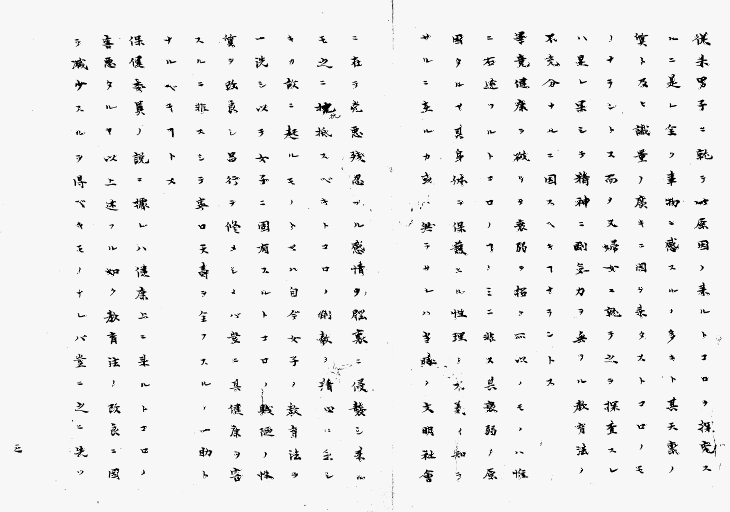 従来男子ニ就テ此原因ノ来ルトコロヲ探究ス
ルニ是レ全ク事物ニ感スルノ多キト其天稟ノ
質ト及ヒ識量ノ広キニ因ヲ来タストコロノモ
ノナラントス而ノ又婦女ニ就テ之ヲ探査スレ
ハ是レ果シテ精神ニ剛気力ヲ与フル教育法ノ
不充分ナルニ因スヘキナラントス
畢竟健康ヲ破リ衰弱ヲ招ク所以ノモノハ惟
ニ右述フルトコロノミニ非ス其衰弱ノ原
因タルヤ真身体ヲ保護スル性理ノ大義ヲ知ラ
サルニ至ルカ亥ニ然ラサレハ当時ノ文明社会
ニ在テ兇悪残忍ナル感情ヲ脳裏ニ侵襲シ来ル
モ之ニ抗抵スベキトコロノ倒数ノ精心ニ乏シ
キカ故ニ起ルモノトセハ自今女子ノ教育法ヲ
一洗シ以テ女子ニ固有スルトコロノ性
質ヲ改良シ品行ヲ修メシメバ豈ニ其健康ヲ害
スルニ非スシテ寡ロ天寿ヲ全フスルノ一助ト
ナルベキナトス
保健委員ノ説ニ據レハ健康上ニ来ルトコロノ
害悪タルヤ以上述フル如ク教育法ノ改良ニ因
テ減少スルヲ得ベキモノナレバ豈ニ之ニ先ツ
三